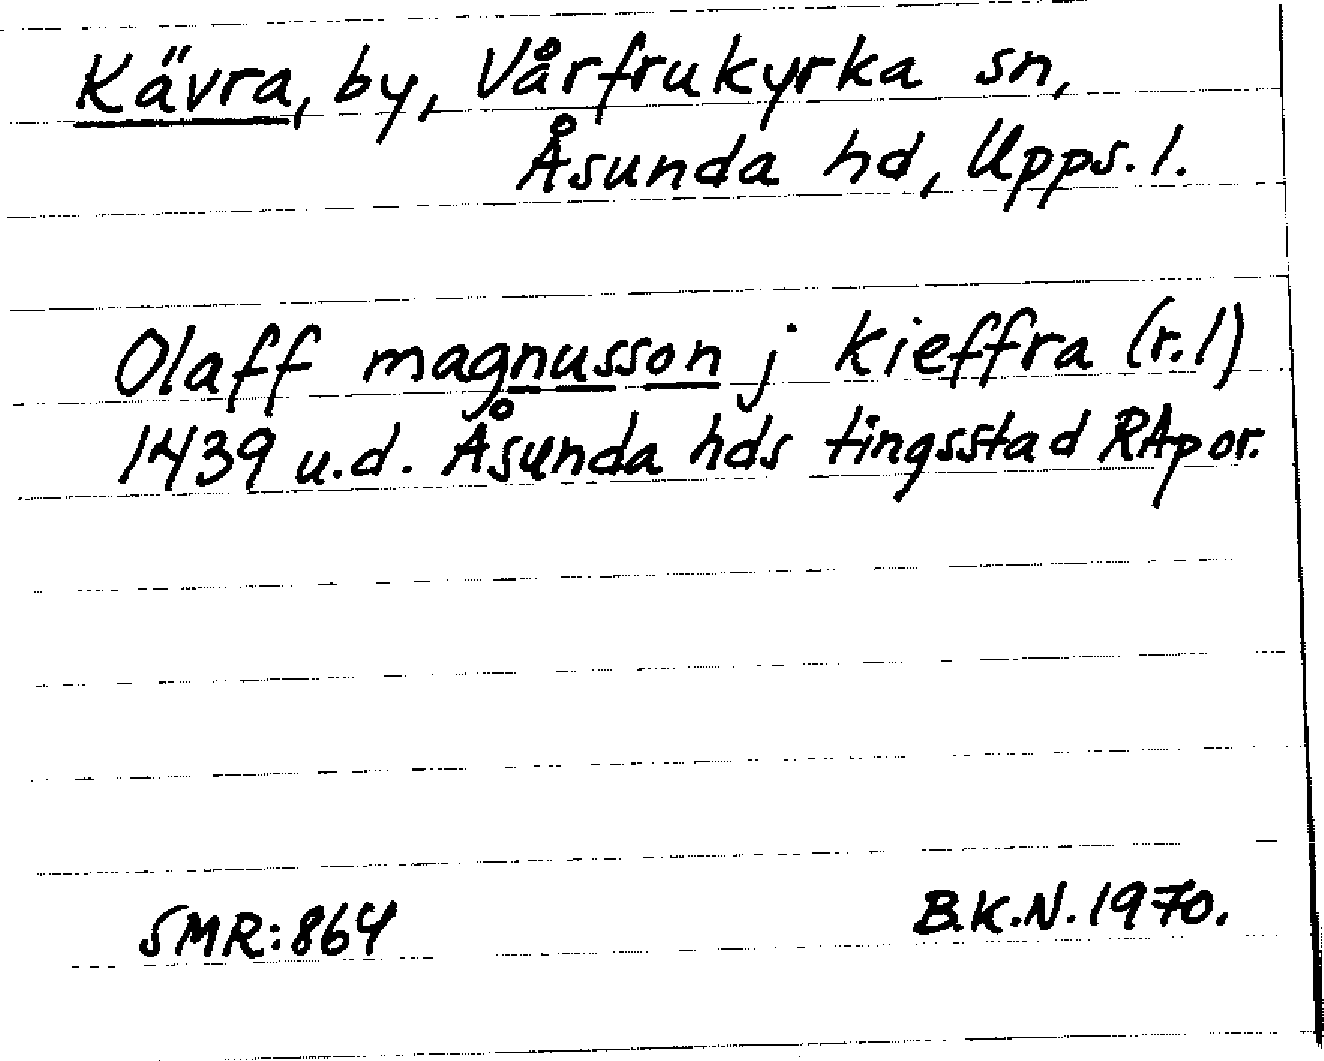 Kävra, by, Vårfrukyrka sn,
Åsunda hd, Upps. l.
Olaff magnusson j kieffra (r.l)
1439 u.d. Åsunda hds tingsstad RAp or.
SMR:864
B.K.N. 1970.